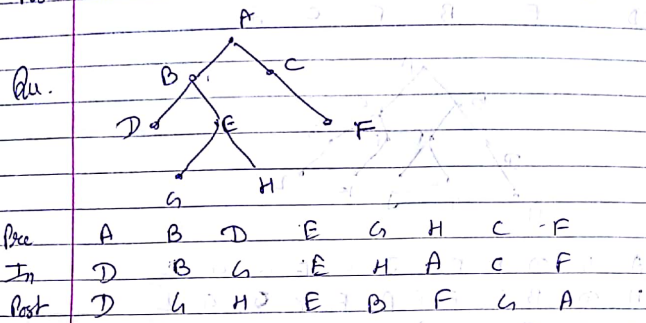 A
B C
Qu.
D E F
G H
Pre A B D E G H C F
In D B G E H A C F
Post D G H E B F G A